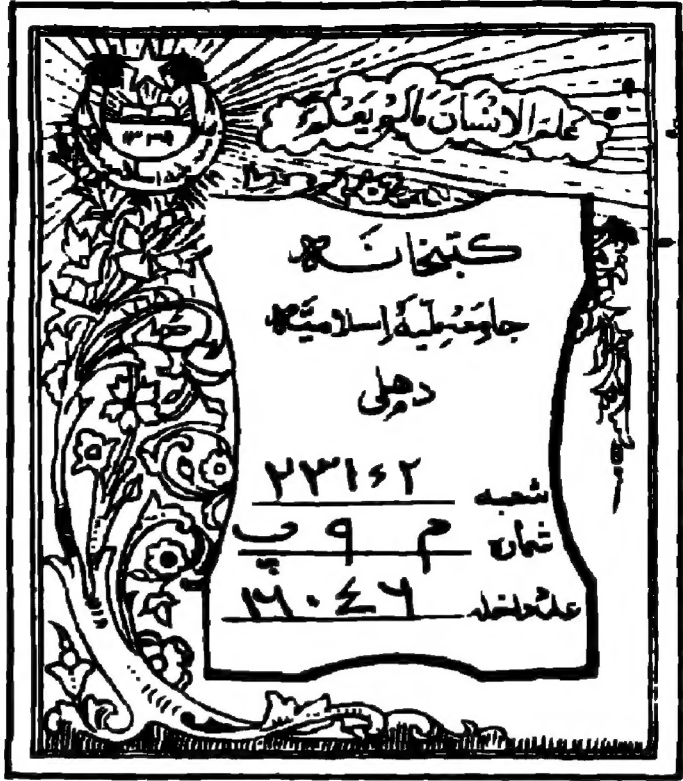 عَلَّمَ الْاِنْسَانَ مَالَمْ يَعْلَمْ
كتبخانہ
جامعہ ملیہ اسلامیہ
دہلی
شعبہ ۲۳۱۶۲
شمارہ م ۹ ب
علہ داخلہ ۲۶۰۴۶